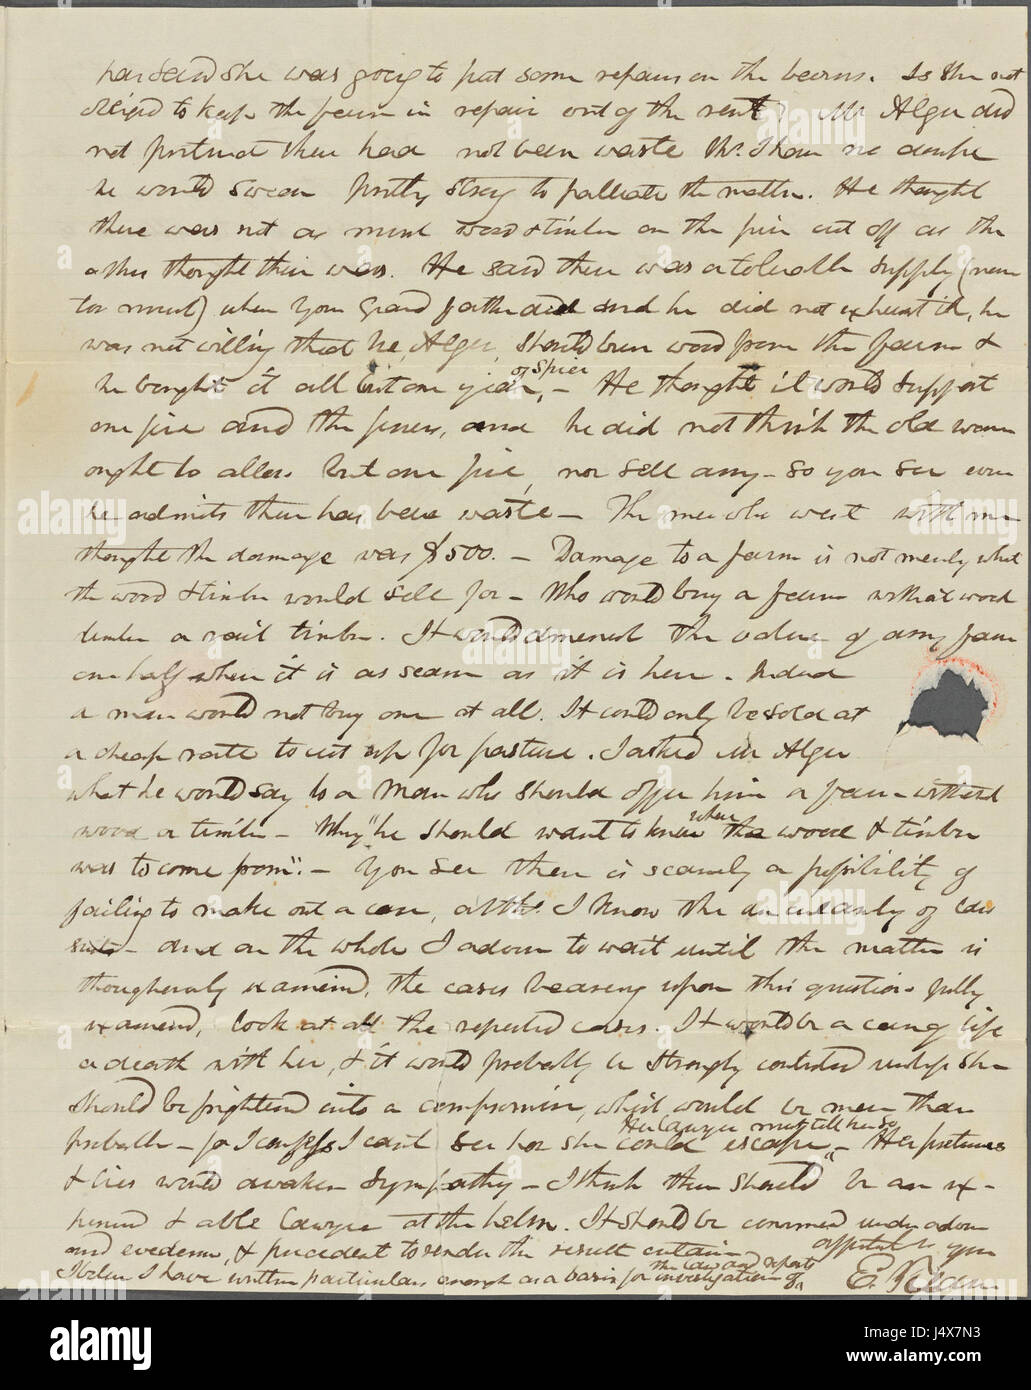 has said she was going to put some repairs on the barns. Is she not
obliged to keep the farm in repair out of the rent? Mr Alger did
not pretend there had not been waste tho. I have no doubt
he would swear pretty strong to palliate the matter. He thought
there was not as much wood & timber on the piece cut off as the
others thought there was. He said there was a tolerable supply (none
too much) when your Grand father died and he did not exhaust it, he
was not willing that he, Alger, should burn wood from the farm &
he bought it all but one year,
of Spier
– He thought it would support
one fire and the fences, and he did not think the old woman
ought to allow but one fire, nor sell any – so you see even
he admits there has been waste – The men who went with me
thought the damage was $500. – Damage to a farm is not merely what
the wood & timber would sell for – Who would buy a farm without wood
timber or rail timber. It would diminish the value of any farm
one half when it is as scarce as it is here. Indeed
a man would not buy one at all. It could only be sold at
a cheap rate to cut up for pasture. I asked Mr Alger
what he would say to a man who should offer him a farm without
wood or timber – Why "he should want to know where the wood & timber
was to come from". – You see there is scarcely a possibility of
failing to make out a case, altho. I know the uncertainty of law
suits – and on the whole I advise to wait until the matter is
thoroughly examined, the cases bearing upon this question fully
examined, look at all the reported cases. It would be a case of life
or death with her, & it would probably be strongly contested unless she
should be frightened into a compromise, which would be more than
probable – for I confess I cant see how she could escape –
Her lawyer must tell her so
Her pretences
& lies would awaken sympathy – I think there should be an ex-
perienced & able lawyer at the helm. It should be commenced under advice
and evidence, & precedent to render the result certain
affectionately yours
I believe I have written particulars enough as a basis for investigation of
the law and reports
E. Tilden
alamy
Image ID: J4X7N3
www.alamy.com